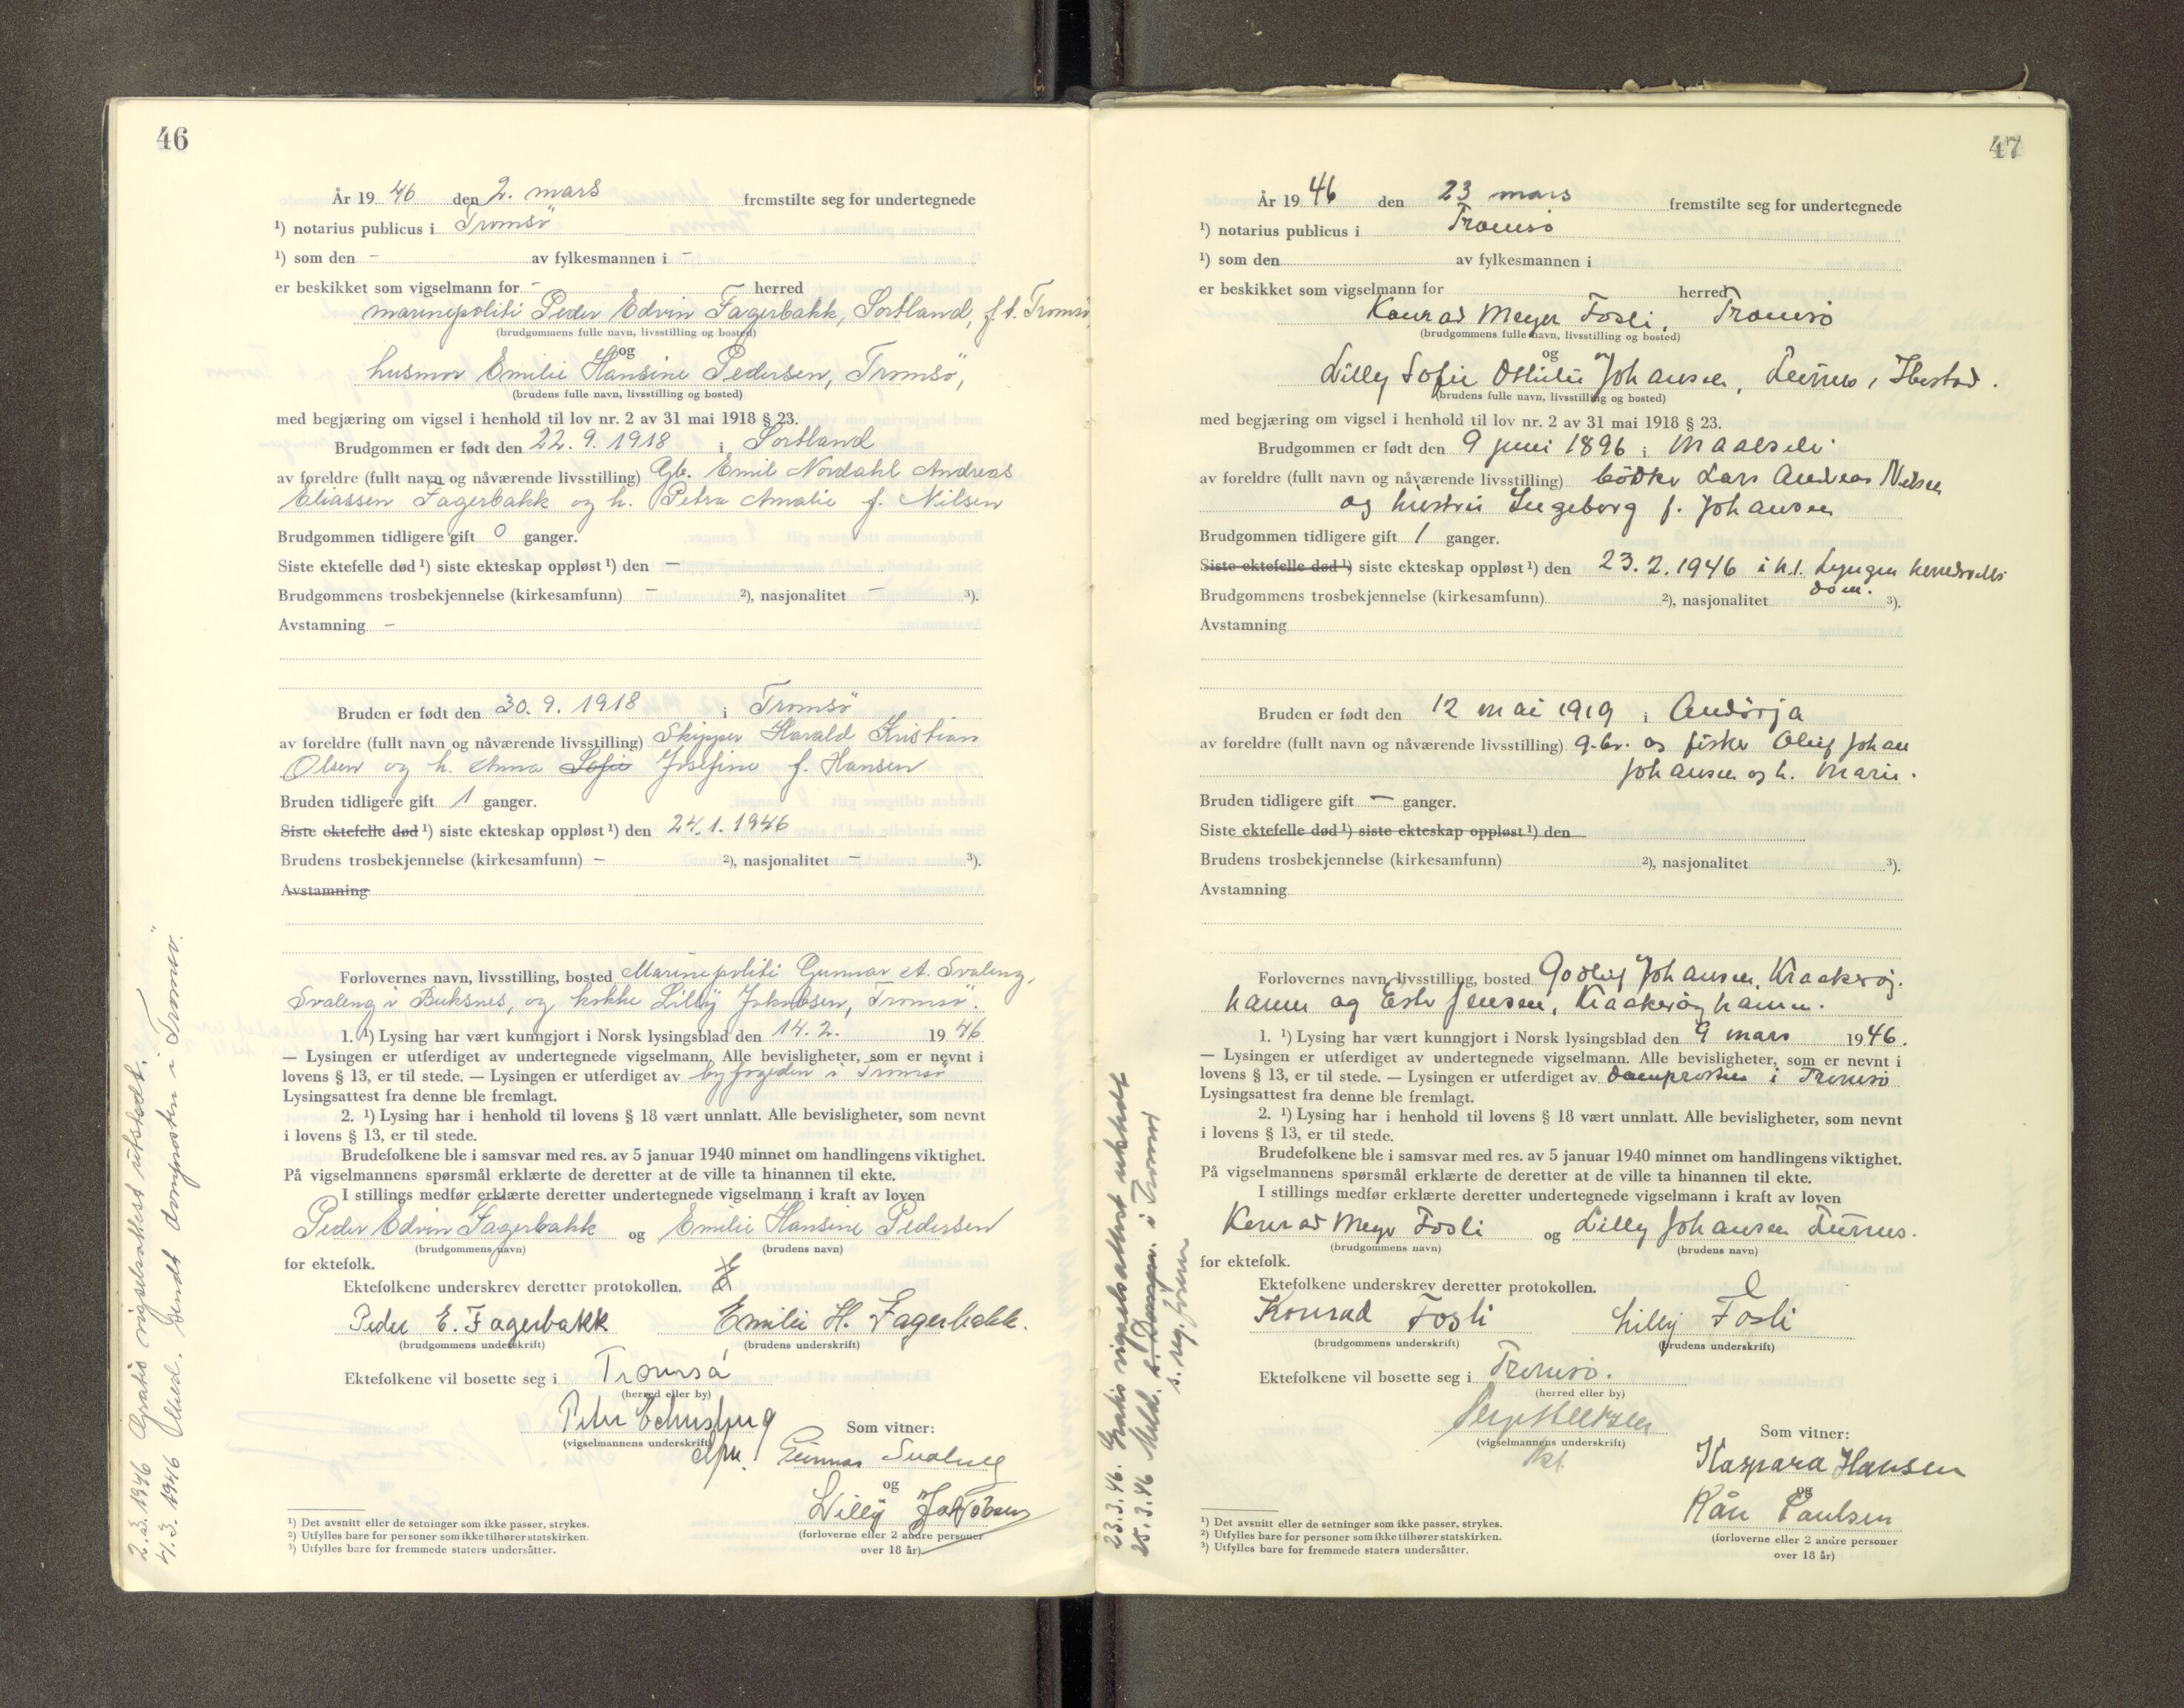 46
År 19 46 den 2. mars fremstilte seg for undertegnede
¹) notarius publicus i Tromsö
¹) som den - av fylkesmannen i -
er beskikket som vigselmann for - herred
marinepoliti Peder Edvin Fagerbakk, Sortland, f.t. Tromsö
(brudgommens fulle navn, livsstilling og bosted)
og
husmor Emilie Hansine Pedersen, Tromsö,
(brudens fulle navn, livsstilling og bosted)
med begjæring om vigsel i henhold til lov nr. 2 av 31 mai 1918 § 23.
Brudgommen er født den 22.9.1918 i Sortland
av foreldre (fullt navn og nåværende livsstilling) Gb. Emil Nordahl Andreas
Eliassen Fagerbakk og h. Petra Amalie f. Nilsen
Brudgommen tidligere gift 0 ganger.
Siste ektefelle død ¹) siste ekteskap oppløst ¹) den —
Brudgommens trosbekjennelse (kirkesamfunn) — ²), nasjonalitet — ³).
Avstamning -
Bruden er født den 30.9.1918 i Tromsö
av foreldre (fullt navn og nåværende livsstilling) Skipper Harald Kristian
Olsen og h. Anna Sofie Josefine f. Hansen
Bruden tidligere gift 1 ganger.
Siste ektefelle død ¹) siste ekteskap oppløst ¹) den 24.1.1946
Brudens trosbekjennelse (kirkesamfunn) - ²), nasjonalitet — ³).
Avstamning
Forlovernes navn, livsstilling, bosted Marinepoliti Gunnar A. Svaleng,
Svaleng i Buksnes, og kokke Lilly Jakobsen, Tromsö.
1. ¹) Lysing har vært kunngjort i Norsk lysingsblad den 14.2. 19 46
— Lysingen er utferdiget av undertegnede vigselmann. Alle bevisligheter, som er nevnt i
lovens § 13, er til stede. — Lysingen er utferdiget av byfogden i Tromsö
Lysingsattest fra denne ble fremlagt.
2. ¹) Lysing har i henhold til lovens § 18 vært unnlatt. Alle bevisligheter, som nevnt
i lovens § 13, er til stede.
Brudefolkene ble i samsvar med res. av 5 januar 1940 minnet om handlingens viktighet.
På vigselmannens spørsmål erklærte de deretter at de ville ta hinannen til ekte.
I stillings medfør erklærte deretter undertegnede vigselmann i kraft av loven
Peder Edvin Fagerbakk og Emilie Hansine Pedersen
(brudgommens navn) (brudens navn)
for ektefolk.
Ektefolkene underskrev deretter protokollen.
Peder E. Fagerbakk Emilie H. Fagerbakk.
(brudgommens underskrift) (brudens underskrift)
Ektefolkene vil bosette seg i Tromsö
(herred eller by)
Peter
(vigselmannens underskrift)
Som vitner:
Gunnar Svaleng
og
Lilly Jakobsen
(forloverne eller 2 andre personer
over 18 år)
¹) Det avsnitt eller de setninger som ikke passer, strykes.
²) Utfylles bare for personer som ikke tilhører statskirken.
³) Utfylles bare for fremmede staters undersåtter.
2.3.1946 Gratis vigselsattest utstedt.
4.3.1946 Medd. sendt domprosten i Tromsö.
47
År 19 46 den 23 mars fremstilte seg for undertegnede
¹) notarius publicus i Tromsö
¹) som den av fylkesmannen i
er beskikket som vigselmann for herred
Konrad Meyer Fosli, Tromsö
(brudgommens fulle navn, livsstilling og bosted)
og
Lilly Sofie Ottilie Johansen, Ibestad.
(brudens fulle navn, livsstilling og bosted)
med begjæring om vigsel i henhold til lov nr. 2 av 31 mai 1918 § 23.
Brudgommen er født den 9 juni 1896 i Maalselv
av foreldre (fullt navn og nåværende livsstilling) bödker Lars Andreas Nilsen
og hustru Ingeborg f. Johansen
Brudgommen tidligere gift 1 ganger.
Siste ektefelle død ¹) siste ekteskap oppløst ¹) den 23.2.1946 i h.t. Lyngen herredsretts
dom.
Brudgommens trosbekjennelse (kirkesamfunn) ²), nasjonalitet ³).
Avstamning
Bruden er født den 12 mai 1919 i Andörja
av foreldre (fullt navn og nåværende livsstilling) g.br. og fisker Oluf Johan
Johansen og h. Marie.
Bruden tidligere gift — ganger.
Siste ektefelle død ¹) siste ekteskap oppløst ¹) den
Brudens trosbekjennelse (kirkesamfunn) ²), nasjonalitet ³).
Avstamning
Forlovernes navn, livsstilling, bosted Johansen, Kraakeröy-
hamn og Jensen, Kraakeröyhamn.
1. ¹) Lysing har vært kunngjort i Norsk lysingsblad den 9 mars 1946.
— Lysingen er utferdiget av undertegnede vigselmann. Alle bevisligheter, som er nevnt i
lovens § 13, er til stede. — Lysingen er utferdiget av domprosten i Tromsö
Lysingsattest fra denne ble fremlagt.
2. ¹) Lysing har i henhold til lovens § 18 vært unnlatt. Alle bevisligheter, som nevnt
i lovens § 13, er til stede.
Brudefolkene ble i samsvar med res. av 5 januar 1940 minnet om handlingens viktighet.
På vigselmannens spørsmål erklærte de deretter at de ville ta hinannen til ekte.
I stillings medfør erklærte deretter undertegnede vigselmann i kraft av loven
Konrad Meyer Fosli og Lilly Johansen
(brudgommens navn) (brudens navn)
for ektefolk.
Ektefolkene underskrev deretter protokollen.
Konrad Fosli Lilly Fosli
(brudgommens underskrift) (brudens underskrift)
Ektefolkene vil bosette seg i Tromsö.
(herred eller by)
(vigselmannens underskrift)
Som vitner:
Kaspara Hansen
og
Kåre Paulsen
(forloverne eller 2 andre personer
over 18 år)
¹) Det avsnitt eller de setninger som ikke passer, strykes.
²) Utfylles bare for personer som ikke tilhører statskirken.
³) Utfylles bare for fremmede staters undersåtter.
23.3.46. Gratis vigselsattest utstedt
25.3.46 Meld. s. Dompr. i Tromsö
s. reg. föreren